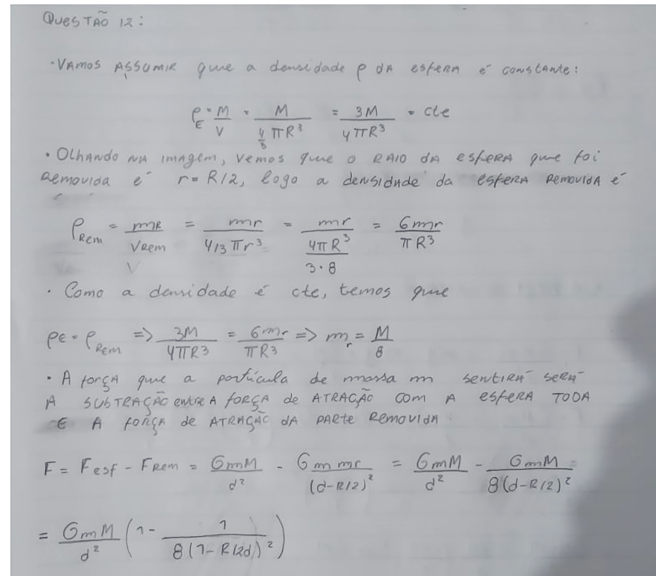 QUESTÃO 12:
• VAMOS ASSUMIR que a densidade ρ DA esfera é constante:
ρ_E = M/V = M/(4/3 πR³) = 3M/(4πR³) = cte
• Olhando NA imagem, vemos que o RAIO DA esfera que foi
Removida é r = R/2, logo a densidade da esfera Removida é
ρ_Rem = m_R/V_Rem = mr/(4/3 πr³) = mr/(4πR³/(3·8)) = 6mr/(πR³)
• Como a densidade é cte, temos que
ρE = ρ_Rem => 3M/(4πR³) = 6mr/(πR³) => m_r = M/8
• A força que a partícula de massa m sentirá será
A SUBTRAÇÃO entre A FORÇA de ATRAÇÃO COM A esfera TODA
E A força de ATRAÇÃO DA PARTE Removida
F = F_esf - F_Rem = GmM/d² - Gmmr/(d-R/2)² = GmM/d² - GmM/(8(d-R/2)²) =
= GmM/d² (1 - 1/(8(1-R/2d)²))